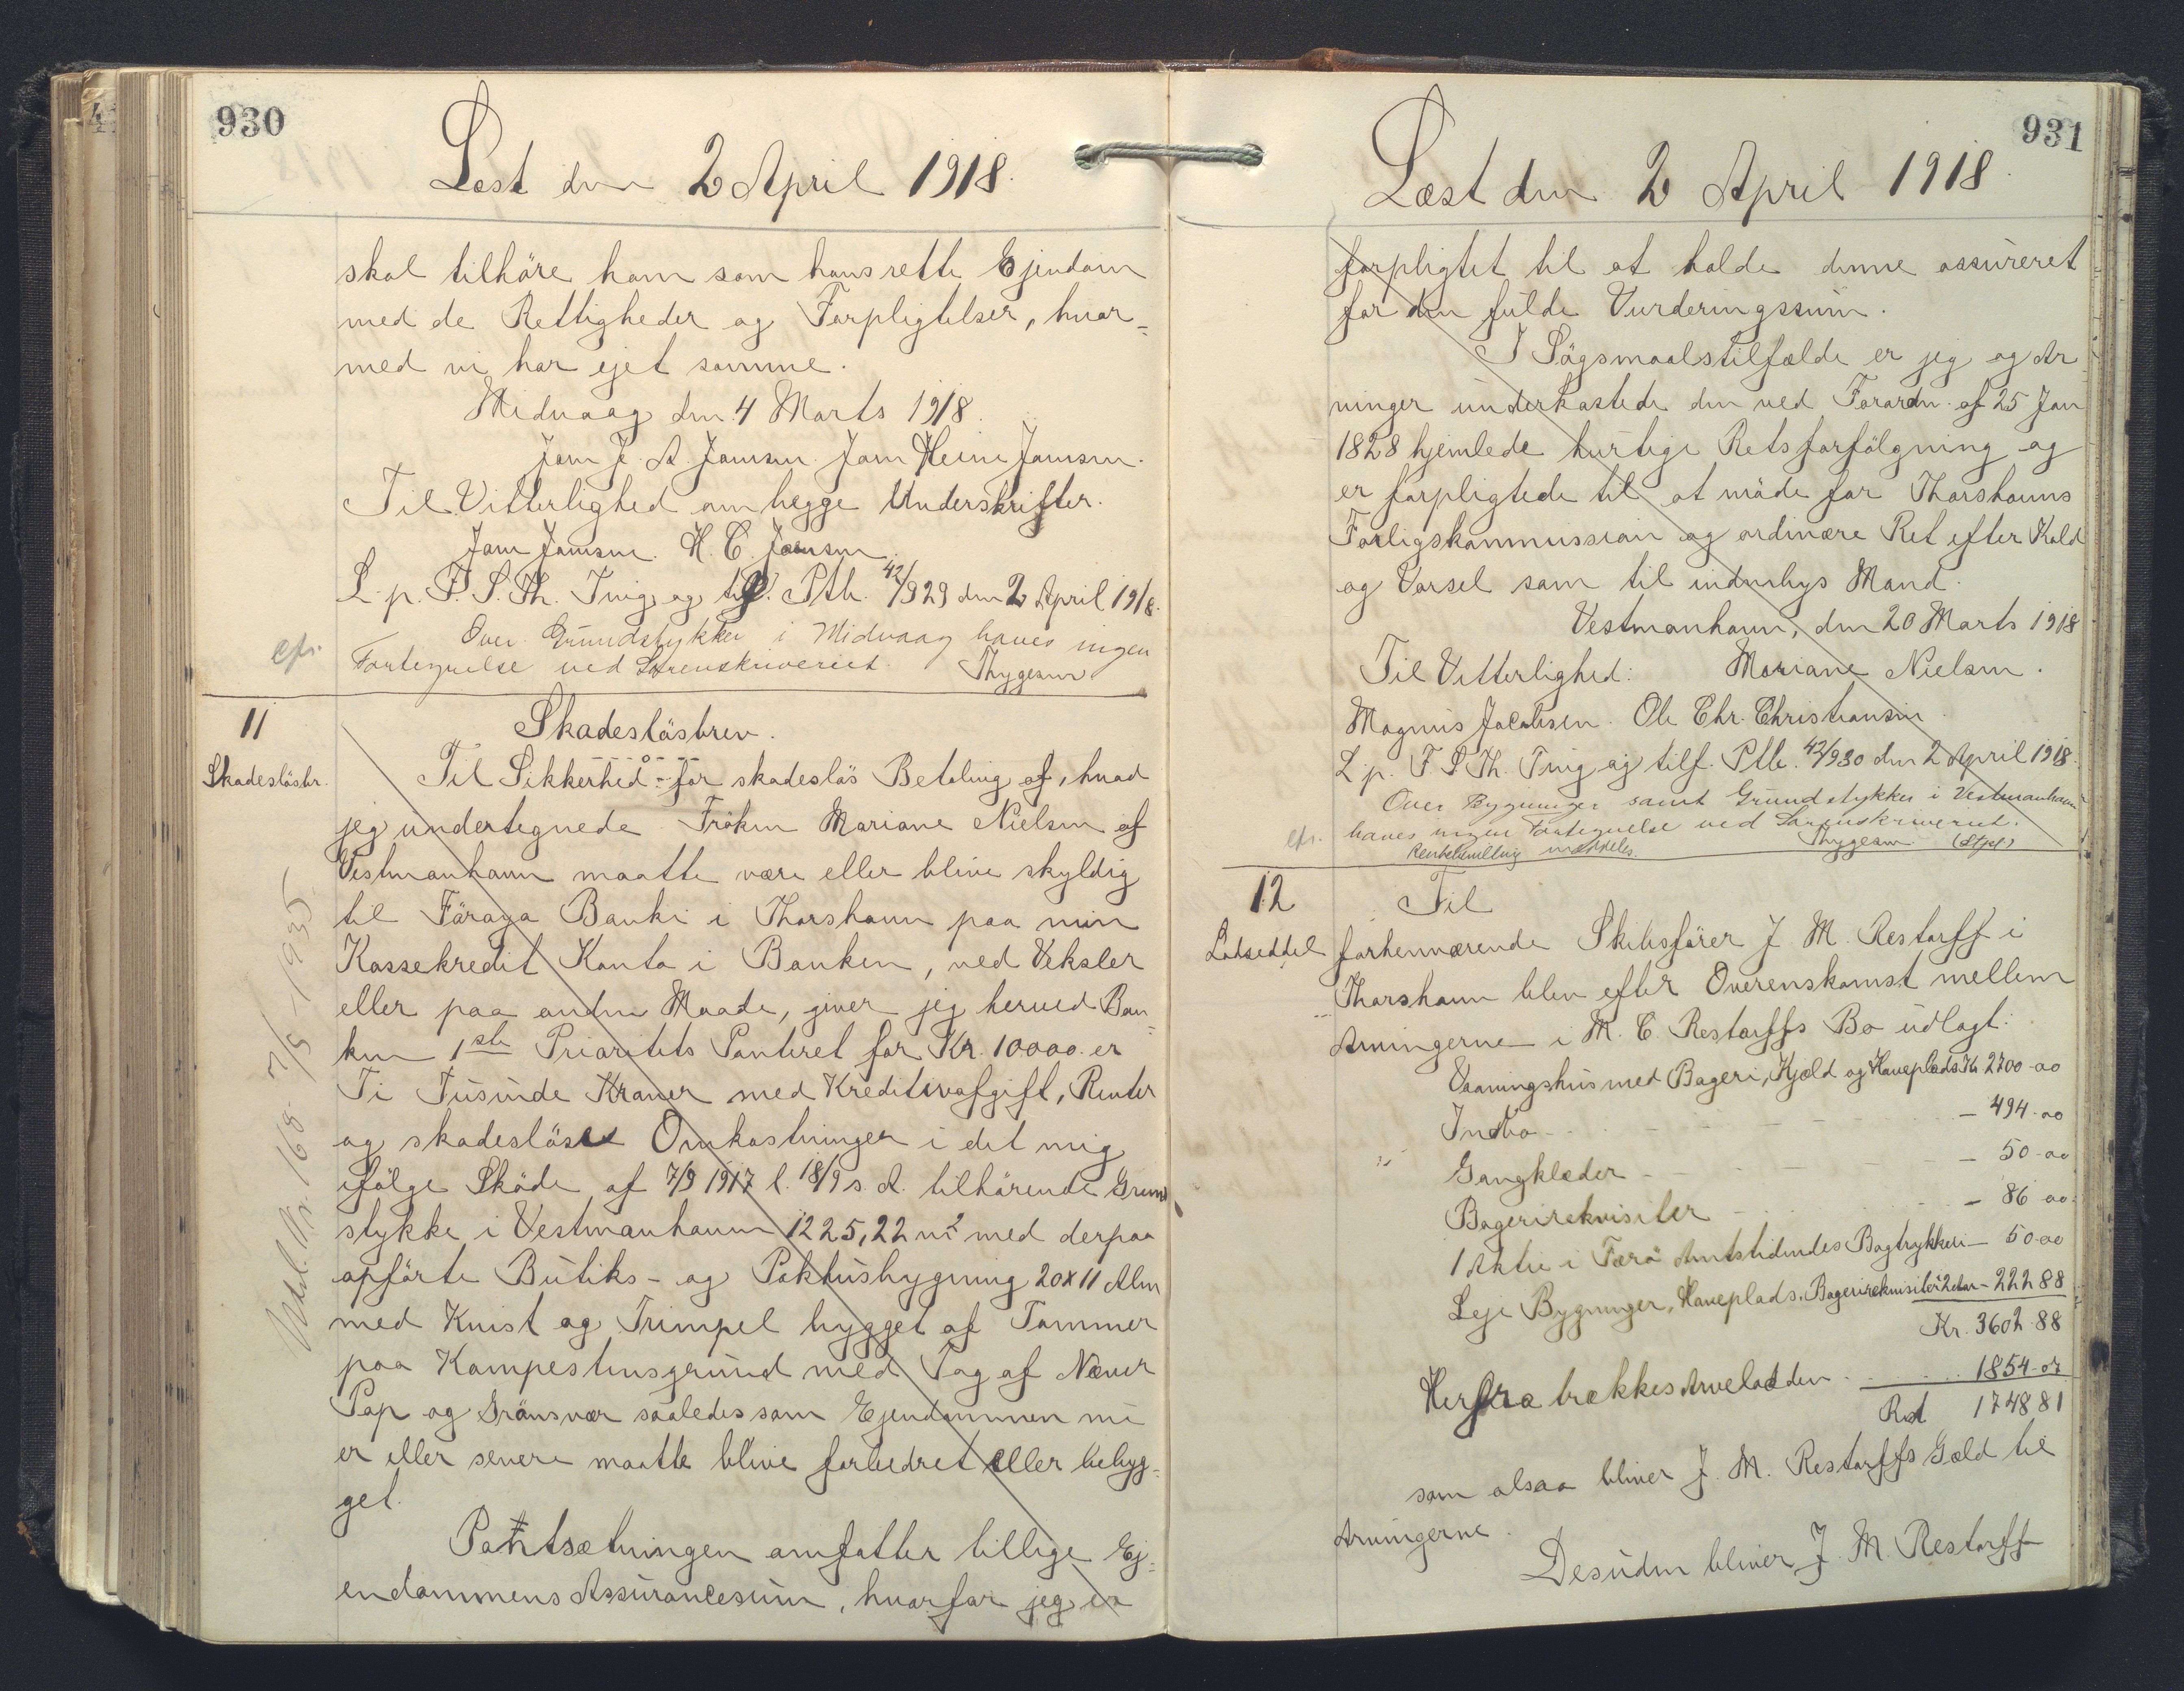 930
Læst den 2 April 1918.
skal tilhøre ham som hans rette Ejendom
med de Rettigheder og Forpligtelser, hvor=
med vi har ejet samme.
Midvaag den 4 Marts 1918.
Joen J. A. Joensen. Joen Heine Joensen.
Til Vitterlighed om begge Underskrifter.
Joen Joensen. H. C. Joensen
L. p. F. S. Th. Ting og tilf. Ptb. 42/929 den 2 April 1918.
Over Grundstykker i Midvaag haves ingen
cfr. Fortegnelse ved Sorenskriveriet. Thygesen
11
Skadesløsbr.
Skadesløsbrev.
Til Sikkerhed for skadesløs Betaling af, hvad
jeg undertegnede Frøken Mariane Nielsen af
Vestmanhavn maatte være eller blive skyldig
til Føroya Banki i Thorshavn paa min
Kassekredit Konto i Banken, ved Veksler
eller paa anden Maade, giver jeg herved Ban=
ken 1ste Prioritets Panteret for Kr. 10000. er
Ti Tusinde Kroner med Kreditivafgift, Renter
og skadesløse Omkostninger i det mig
ifølge Skøde af 7/9 1917 l. 18/9 s. A. tilhørende Grund
stykke i Vestmanhavn 1225,22 m2 med derpaa
opførte Butiks- og Pakhusbygning 20x11 Alen
med Kvist og Trimpel bygget af Tømmer
paa Kampestensgrund med Tag af Næver
Pap og Grønsvær saaledes som Ejendommen nu
er eller senere maatte blive forbedret eller bebyg=
get.
Pantsætningen omfatter tillige Ej=
endommens Assurancesum, hvorfor jeg er
Udsl. Nr. 168 7/8-1935
931
Læst den 2 April 1918.
forpligtet til at holde denne assureret
for den fulde Vurderingssum.
I Søgsmaalstilfælde er jeg og Ar
vinger underkastede den ved Forordn. af 25 Jan
1828 hjemlede hurtige Retsforfølgning og
er forpligtede til at møde for Thorshavns
Forligskommission og ordinære Ret efter Kald
og Varsel som til indenbys Mand.
Vestmanhavn, den 20 Marts 1918
Til Vitterlighed: Mariane Nielsen.
Magnus Jacobsen. Ole Chr. Christiansen
L. p. F S Th. Ting og tilf. Ptb. 42/930 den 2 April 1918.
Over Bygninger samt Grundstykker i Vestmanhavn
cfr. haves ingen Fortegnelse ved Sorenskriveriet.
meddeles. Thygesen
12
Lodseddel
Til
forhenværende Skibsfører J. M. Restorff i
Thorshavn blev efter Overenskomst mellem
Arvingerne i M. C. Restorffs Bo udlagt:
Vaaningshus med Bageri, Kjæld og Haveplads Kr 2700-00
Indbo - 494-00
Gangklæder - 50-00
Bagerirekvisiter - 86 00
1 Aktie i Færø Amtstidendes Bogtrykkeri - 50-00
Leje Bygninger, Haveplads, Bagerirekvisiter - 222 88
Kr. 3602.88
Herfra trækkes Arvelodden 1854-07
Rest 1748 81
som alsaa bliver J. M. Restorffs Gæld til
Arvingerne.
Desuden bliver J. M. Restorff